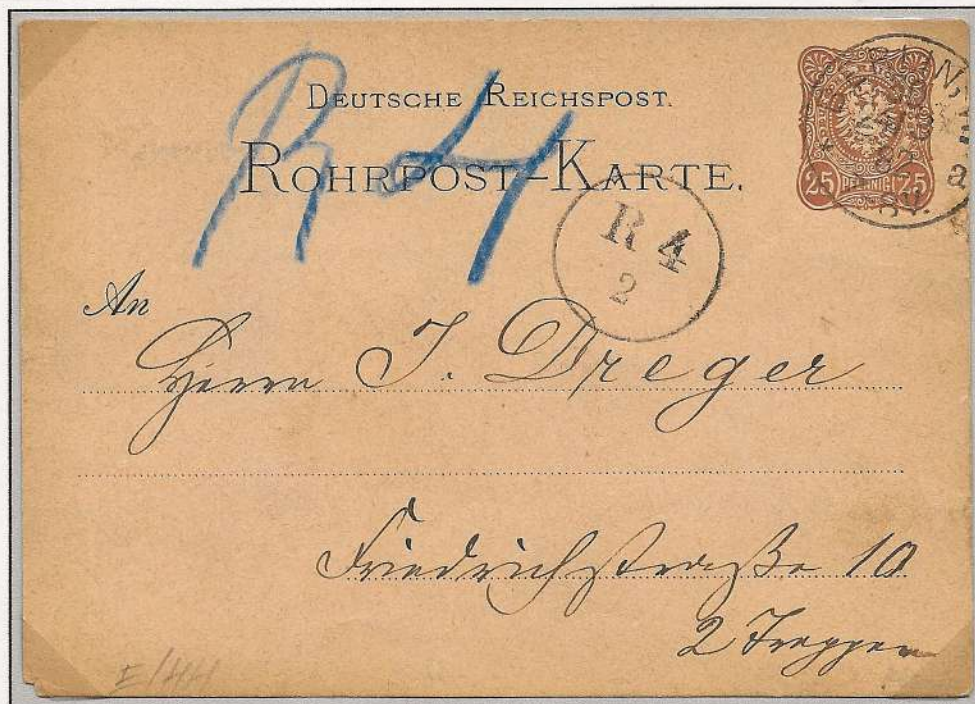 DEUTSCHE REICHSPOST.
ROHRPOST-KARTE.
R 4
25 PFENNIG 25
BERLIN, W.
a
R 4
2
An
Herrn J. Dreger
Friedrichstraße 10
2 Treppen
E/44